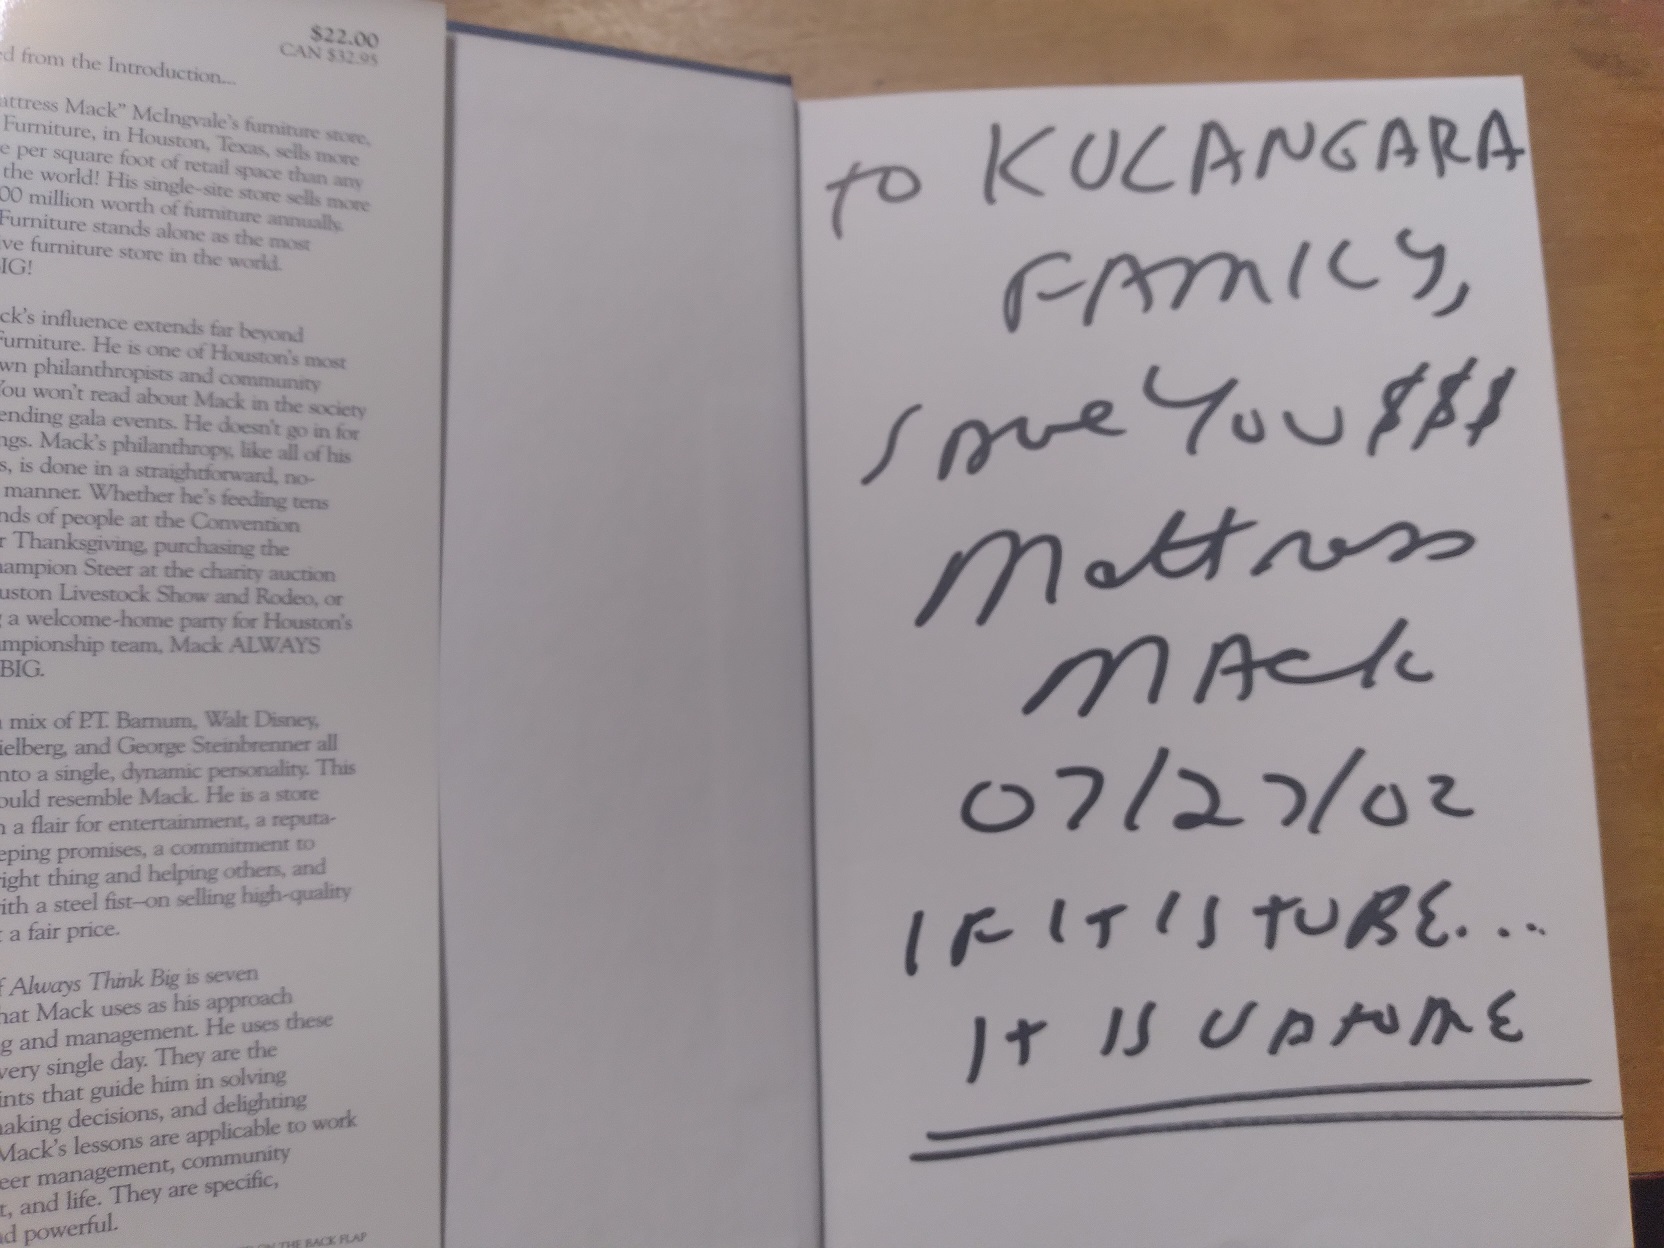 $22.00
CAN $32.95
d from the Introduction...
attress Mack" McIngvale's furniture store,
Furniture, in Houston, Texas, sells more
e per square foot of retail space than any
the world! His single-site store sells more
00 million worth of furniture annually.
Furniture stands alone as the most
ve furniture store in the world.
IG!
ck's influence extends far beyond
Furniture. He is one of Houston's most
wn philanthropists and community
You won't read about Mack in the society
ending gala events. He doesn't go in for
ngs. Mack's philanthropy, like all of his
s, is done in a straightforward, no-
manner. Whether he's feeding tens
nds of people at the Convention
r Thanksgiving, purchasing the
hampion Steer at the charity auction
uston Livestock Show and Rodeo, or
g a welcome-home party for Houston's
mpionship team, Mack ALWAYS
BIG.
mix of P.T. Barnum, Walt Disney,
ielberg, and George Steinbrenner all
nto a single, dynamic personality. This
ould resemble Mack. He is a store
h a flair for entertainment, a reputa-
eping promises, a commitment to
ight thing and helping others, and
ith a steel fist—on selling high-quality
t a fair price.
f Always Think Big is seven
hat Mack uses as his approach
g and management. He uses these
very single day. They are the
ints that guide him in solving
aking decisions, and delighting
Mack's lessons are applicable to work
eer management, community
t, and life. They are specific,
nd powerful.
ON THE BACK FLAP
to KULANGARA
FAMILY,
SAVE YOU $$$
Mattress
MACK
07/27/02
IF IT IS TO BE....
IT IS UP TO ME